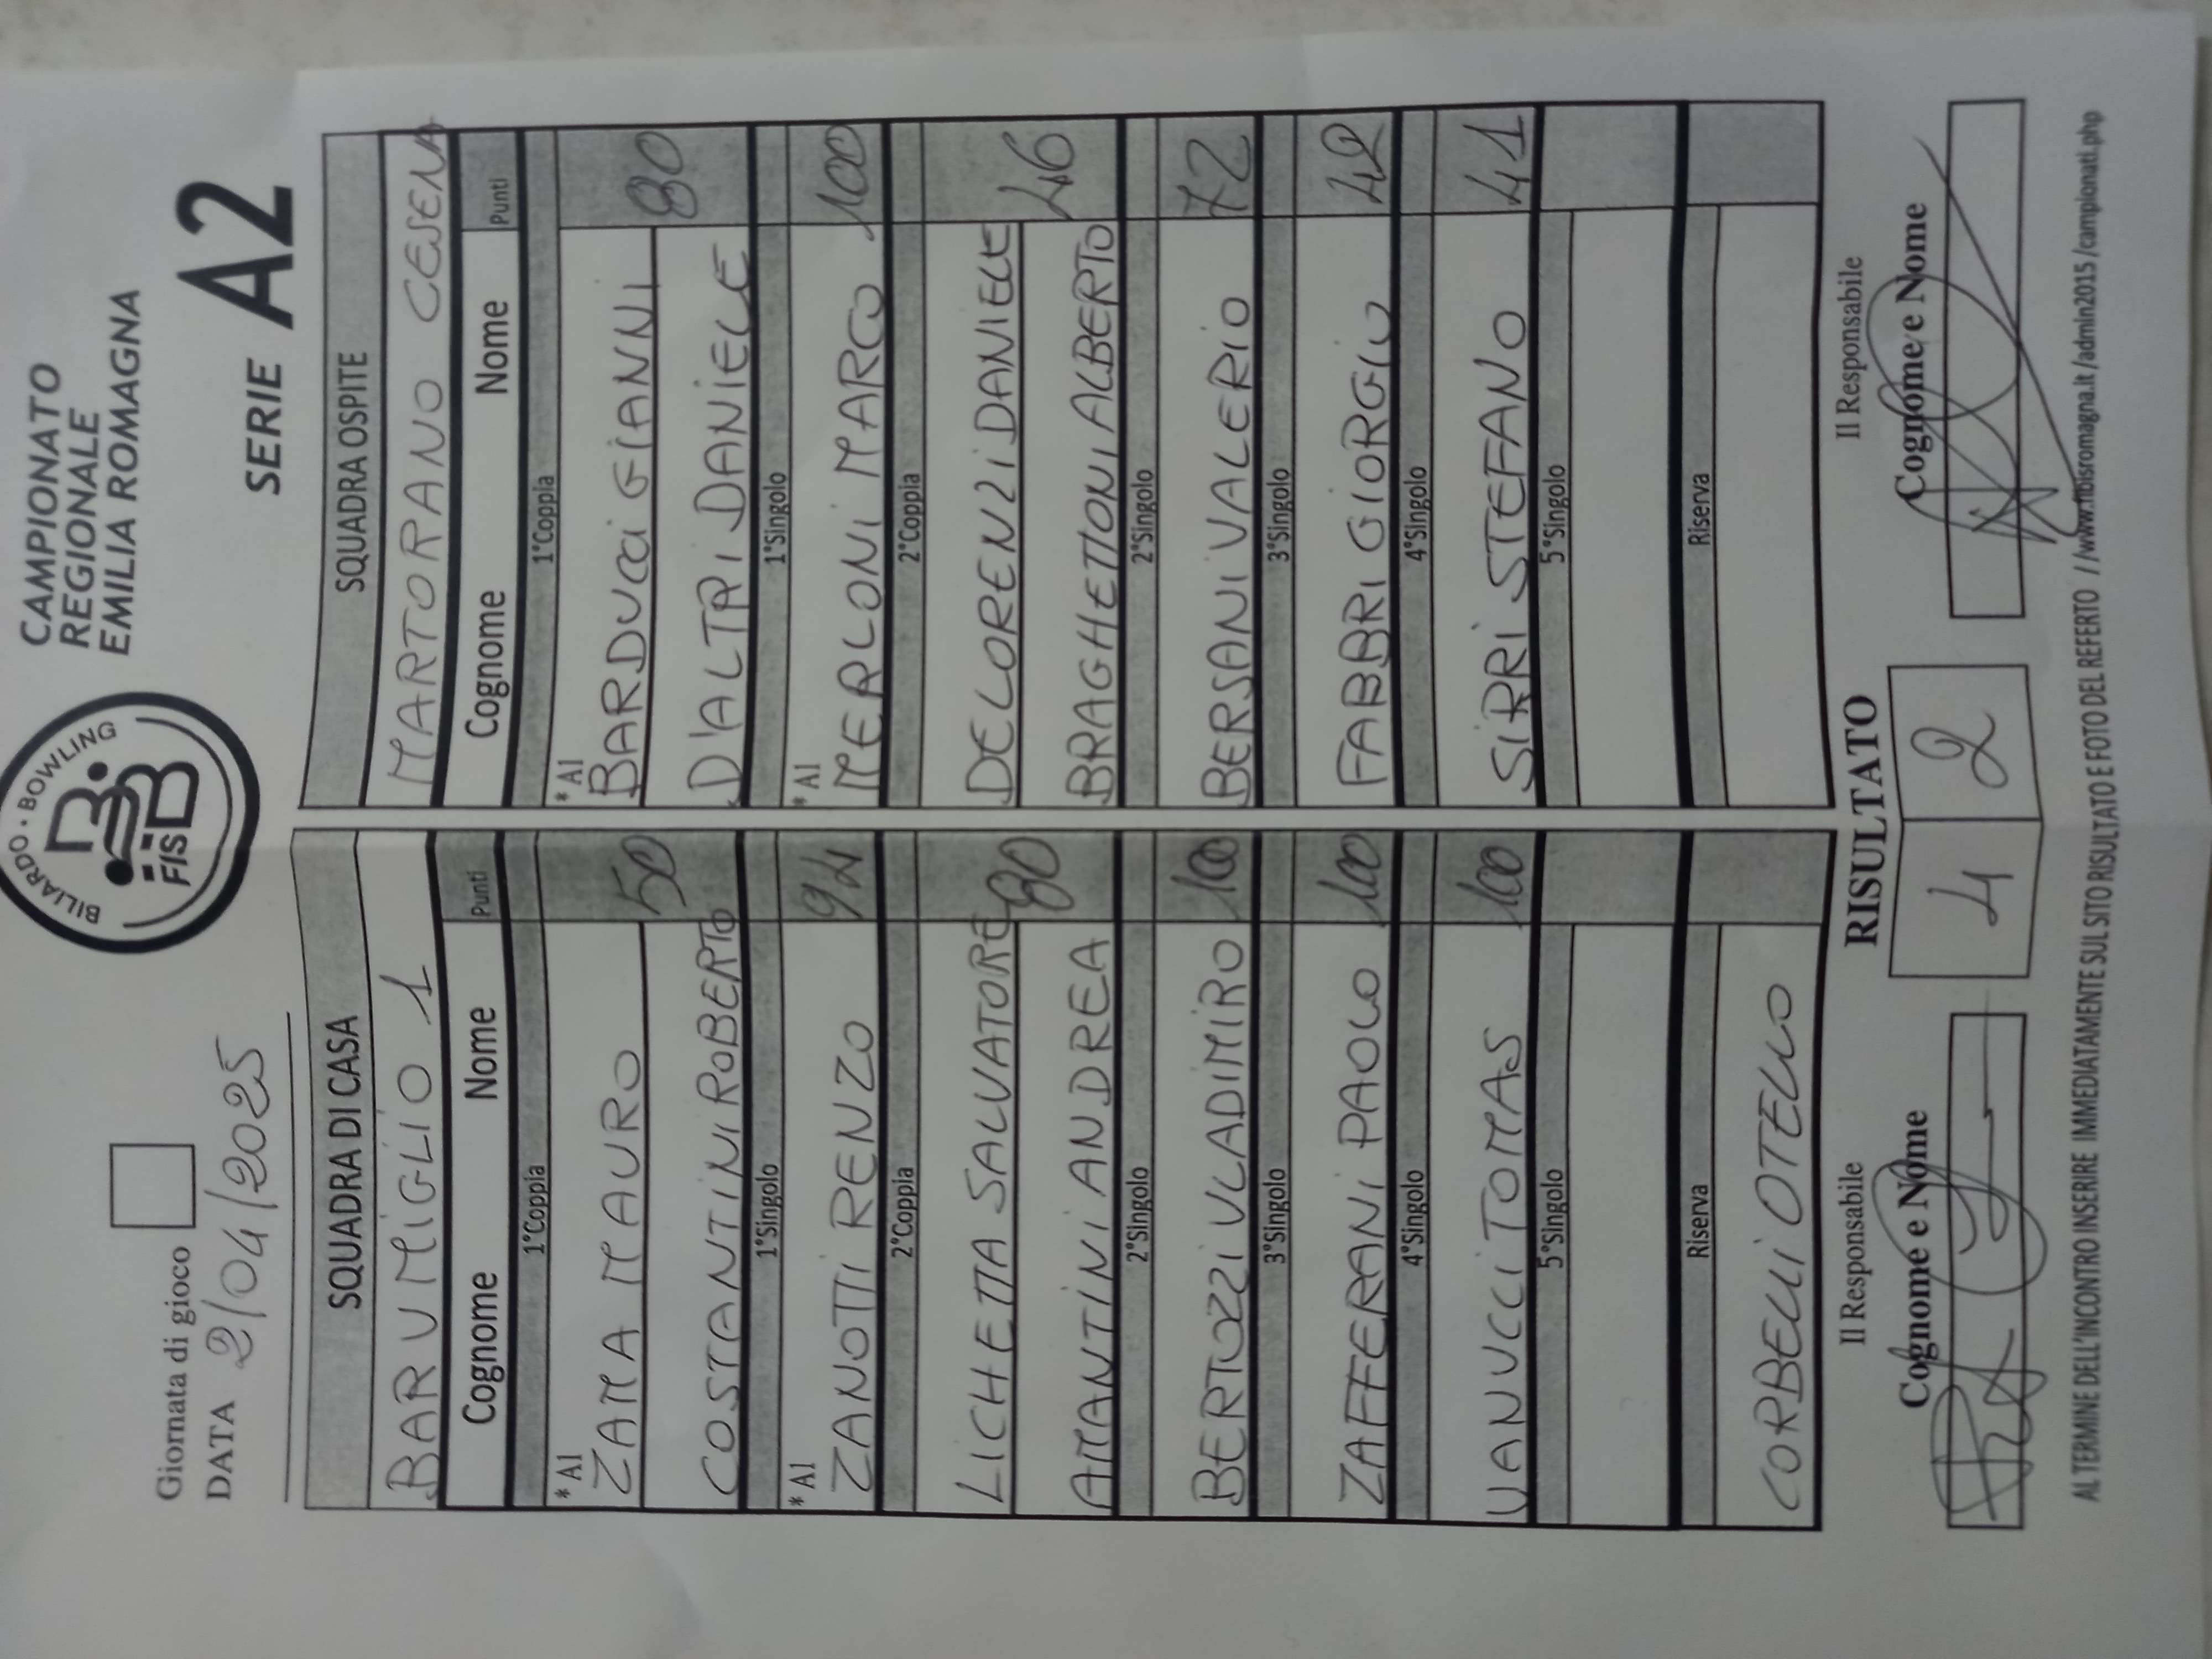 BILIARDO · BOWLING
FISBB
CAMPIONATO
REGIONALE
EMILIA ROMAGNA
Giornata di gioco
DATA 2/04/2025
SERIE A2
SQUADRA DI CASA
BAR VMIGLIO 1
Cognome Nome Punti
1°Coppia
*A1
ZAMA MAURO
50
COSTANTINI ROBERTO
1°Singolo
*A1
ZANOTTI RENZO 94
2°Coppia
LICHETTA SALVATORE
80
AMANTINI ANDREA
2°Singolo
BERTOZZI VLADIMIRO 100
3°Singolo
ZAFFERANI PAOLO 100
4°Singolo
VANUCCI TOMAS 100
5°Singolo
Riserva
CORBELLI OTELLO
SQUADRA OSPITE
MARTORANO CESENA
Cognome Nome Punti
1°Coppia
*A1
BARDUCCI GIANNI
80
D'ALTRI DANIELE
1°Singolo
*A1
MERLONI MARCO 100
2°Coppia
DELORENZI DANIELE
46
BRAGHETTONI ALBERTO
2°Singolo
BERSANI VALERIO 72
3°Singolo
FABBRI GIORGIO 42
4°Singolo
SIRRI STEFANO 41
5°Singolo
Riserva
Il Responsabile
Cognome e Nome
RISULTATO
4 2
Il Responsabile
Cognome e Nome
AL TERMINE DELL'INCONTRO INSERIRE IMMEDIATAMENTE SUL SITO RISULTATO E FOTO DEL REFERTO //www.fibisromagna.it/admin2015/campionati.php